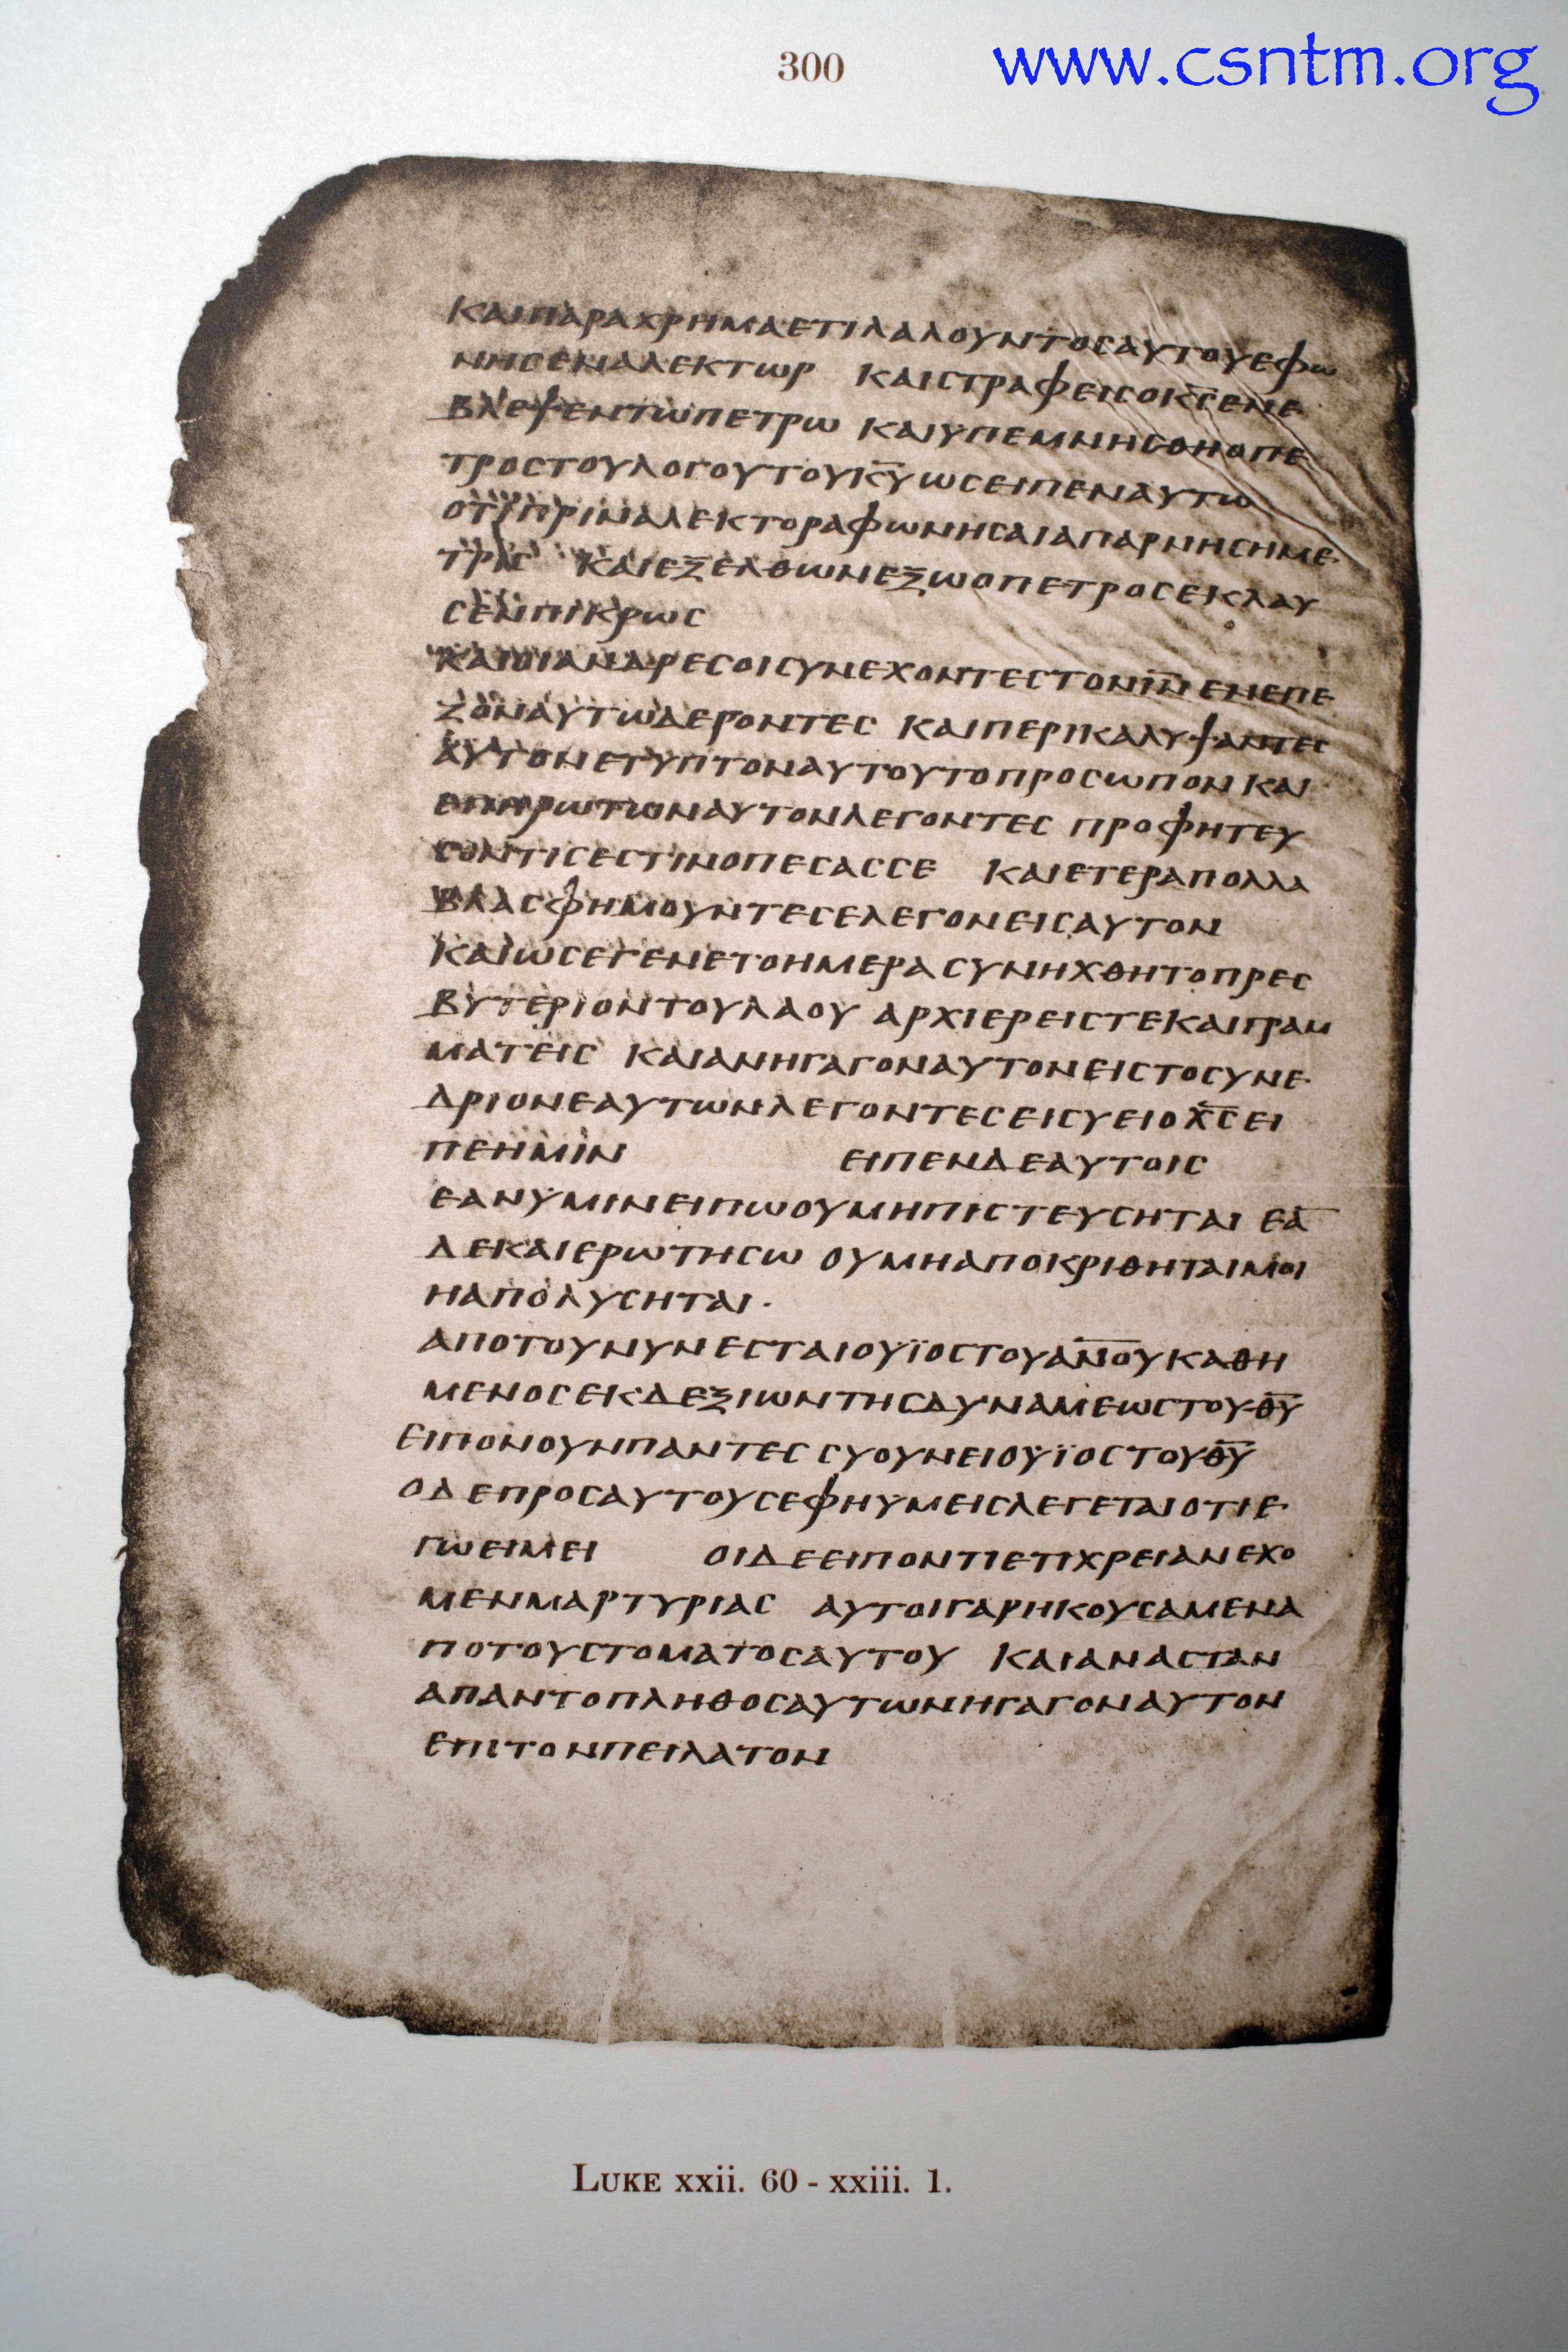 300
www.csntm.org
ΚΑΙΠΑΡΑΧΡΗΜΑΕΤΙΛΑΛΟΥΝΤΟΣΑΥΤΟΥΕΦΩ
ΝΗΣΕΝΑΛΕΚΤΩΡ ΚΑΙΣΤΡΑΦΕΙΣΟΚ̅Σ̅ΕΝΕ
ΒΛΕΨΕΝΤΩΠΕΤΡΩ ΚΑΙΥΠΕΜΝΗΣΘΗΟΠΕ
ΤΡΟΣΤΟΥΛΟΓΟΥΤΟΥΚ̅Υ̅ΩΣΕΙΠΕΝΑΥΤΩ
ΟΤΙΠΡΙΝΑΛΕΚΤΟΡΑΦΩΝΗΣΑΙΑΠΑΡΝΗΣΗΜΕ
ΤΡΙΣ ΚΑΙΕΞΕΛΘΩΝΕΞΩΟΠΕΤΡΟΣΕΚΛΑΥ
ΣΕΝΠΙΚΡΩΣ
ΚΑΙΟΙΑΝΔΡΕΣΟΙΣΥΝΕΧΟΝΤΕΣΤΟΝΙ̅Ν̅ ΕΝΕΠΕ
ΖΟΝΑΥΤΩΔΕΡΟΝΤΕΣ ΚΑΙΠΕΡΙΚΑΛΥΨΑΝΤΕΣ
ΑΥΤΟΝΕΤΥΠΤΟΝΑΥΤΟΥΤΟΠΡΟΣΩΠΟΝ ΚΑΙ
ΕΠΗΡΩΤΩΝΑΥΤΟΝΛΕΓΟΝΤΕΣ ΠΡΟΦΗΤΕΥ
ΣΟΝΤΙΣΕΣΤΙΝΟΠΕΣΑΣΣΕ ΚΑΙΕΤΕΡΑΠΟΛΛΑ
ΒΛΑΣΦΗΜΟΥΝΤΕΣΕΛΕΓΟΝΕΙΣΑΥΤΟΝ
ΚΑΙΩΣΕΓΕΝΕΤΟΗΜΕΡΑΣΥΝΗΧΘΗΤΟΠΡΕΣ
ΒΥΤΕΡΙΟΝΤΟΥΛΑΟΥ ΑΡΧΙΕΡΕΙΣΤΕΚΑΙΓΡΑΜ
ΜΑΤΕΙΣ ΚΑΙΑΝΗΓΑΓΟΝΑΥΤΟΝΕΙΣΤΟΣΥΝΕ
ΔΡΙΟΝΕΑΥΤΩΝΛΕΓΟΝΤΕΣΕΙΣΥΕΙΟΧ̅Σ̅ΕΙ
ΠΕΗΜΙΝ ΕΙΠΕΝΔΕΑΥΤΟΙΣ
ΕΑΝΥΜΙΝΕΙΠΩΟΥΜΗΠΙΣΤΕΥΣΗΤΑΙ ΕΑ̅
ΔΕΚΑΙΕΡΩΤΗΣΩ ΟΥΜΗΑΠΟΚΡΙΘΗΤΑΙΜΟΙ
ΗΑΠΟΛΥΣΗΤΑΙ·
ΑΠΟΤΟΥΝΥΝΕΣΤΑΙΟΥΪΟΣΤΟΥΑ̅Ν̅Ο̅Υ̅ΚΑΘΗ
ΜΕΝΟΣΕΚΔΕΞΙΩΝΤΗΣΔΥΝΑΜΕΩΣΤΟΥΘ̅Υ̅
ΕΙΠΟΝΟΥΝΠΑΝΤΕΣ ΣΥΟΥΝΕΙΟΥΪΟΣΤΟΥΘ̅Υ̅
ΟΔΕΠΡΟΣΑΥΤΟΥΣΕΦΗΥΜΕΙΣΛΕΓΕΤΑΙΟΤΙΕ
ΓΩΕΙΜΕΙ ΟΙΔΕΕΙΠΟΝΤΙΕΤΙΧΡΕΙΑΝΕΧΟ
ΜΕΝΜΑΡΤΥΡΙΑΣ ΑΥΤΟΙΓΑΡΗΚΟΥΣΑΜΕΝΑ
ΠΟΤΟΥΣΤΟΜΑΤΟΣΑΥΤΟΥ ΚΑΙΑΝΑΣΤΑΝ
ΑΠΑΝΤΟΠΛΗΘΟΣΑΥΤΩΝΗΓΑΓΟΝΑΥΤΟΝ
ΕΠΙΤΟΝΠΕΙΛΑΤΟΝ
LUKE xxii. 60 - xxiii. 1.